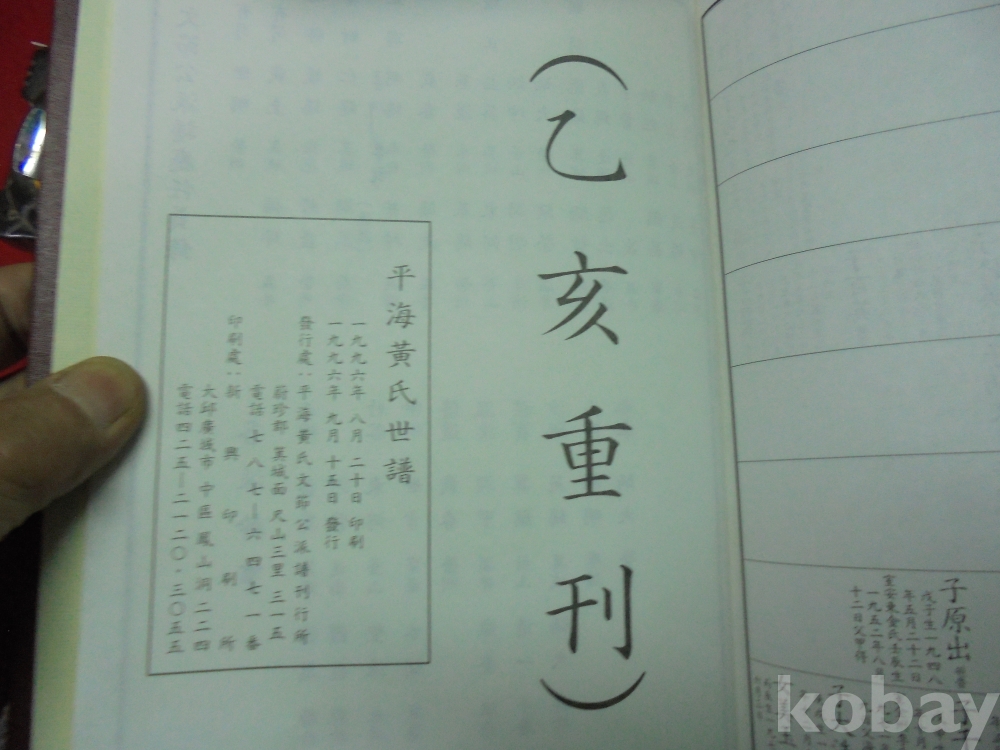 子原出
戊子生一九四八
年五月二十二日
室安東金氏壬辰生
一九五二年八月
十二日父甲得
(乙亥重刊)
平海黃氏世譜
一九九六年 八月 二十日 印刷
一九九六年 九月 十五日 發行
發行處:平海黃氏文節公派譜刊行所
蔚珍郡 箕城面 尺山三里 三一五
電話 七八七ー六四七一番
印刷處:新興印刷所
大邱廣域市 中區 鳳山洞 二二四
電話四二五ー二一二〇·三〇五五
kobay